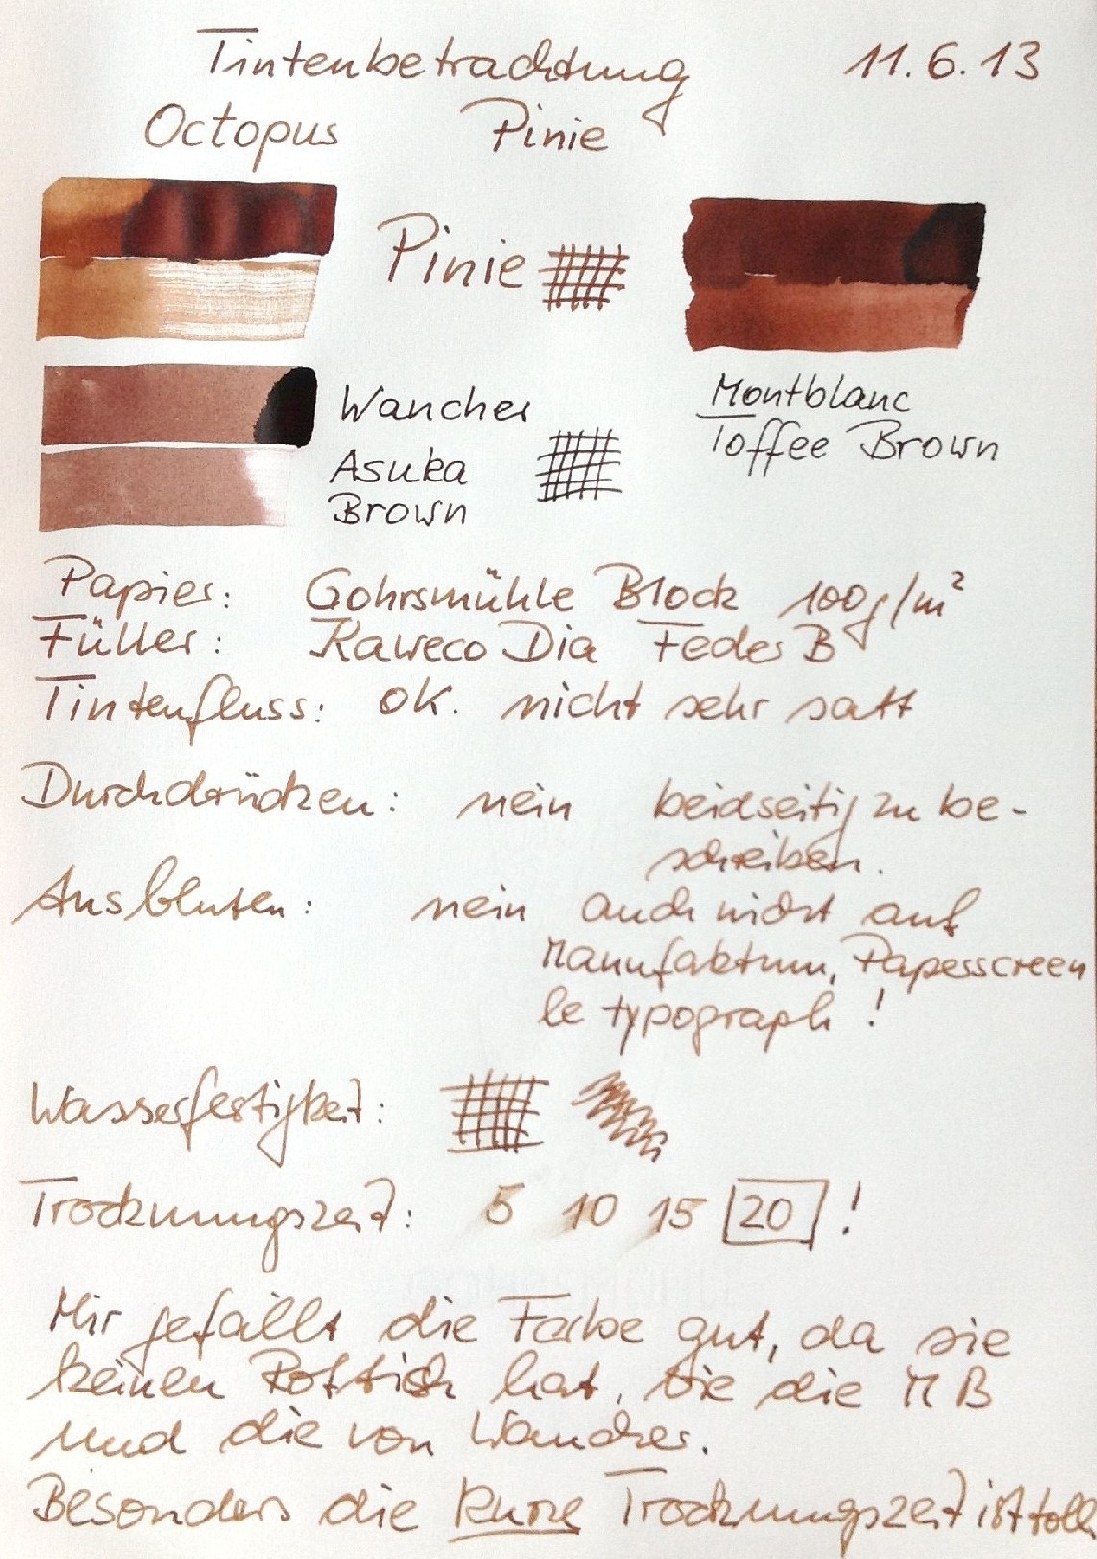 Tintenbetrachtung 11.6.13
Octopus Pinie
Pinie
Montblanc
Toffee Brown
Wancher
Asuka
Brown
Papier: Gohrsmühle Block 100g/m²
Füller: Kaweco Dia Feder B
Tintenfluss: ok. nicht sehr satt
Durchdrücken: nein beidseitig zu be-
schreiben.
Ausbluten: nein auch nicht auf
Manufaktum, Paperscreen
le typograph!
Wasserfestigkeit:
Trocknungszeit: 5 10 15 20 !
Mir gefällt die Farbe gut, da sie
keinen Rotstich hat, wie die MB
und die von Wancher.
Besonders die kurze Trocknungszeit ist toll